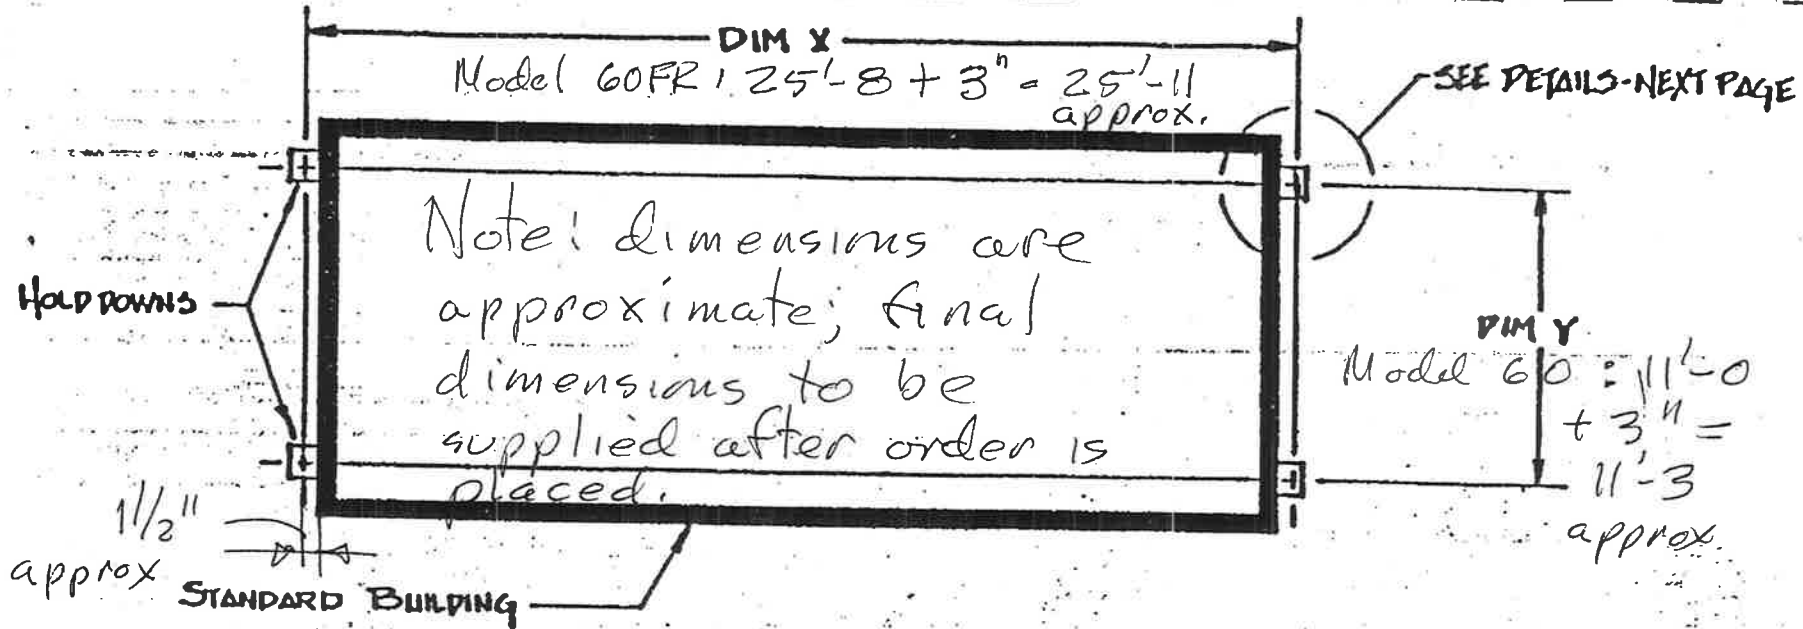 DIM X
Model 60FR: 25'-8 + 3" = 25'-11
approx.
SEE DETAILS-NEXT PAGE
Note: dimensions are
approximate; final
dimensions to be
supplied after order is
placed.
HOLD DOWNS
DIM Y
Model 60: 11'-0
+ 3" =
11'-3
approx.
1 1/2"
approx
STANDARD BUILDING